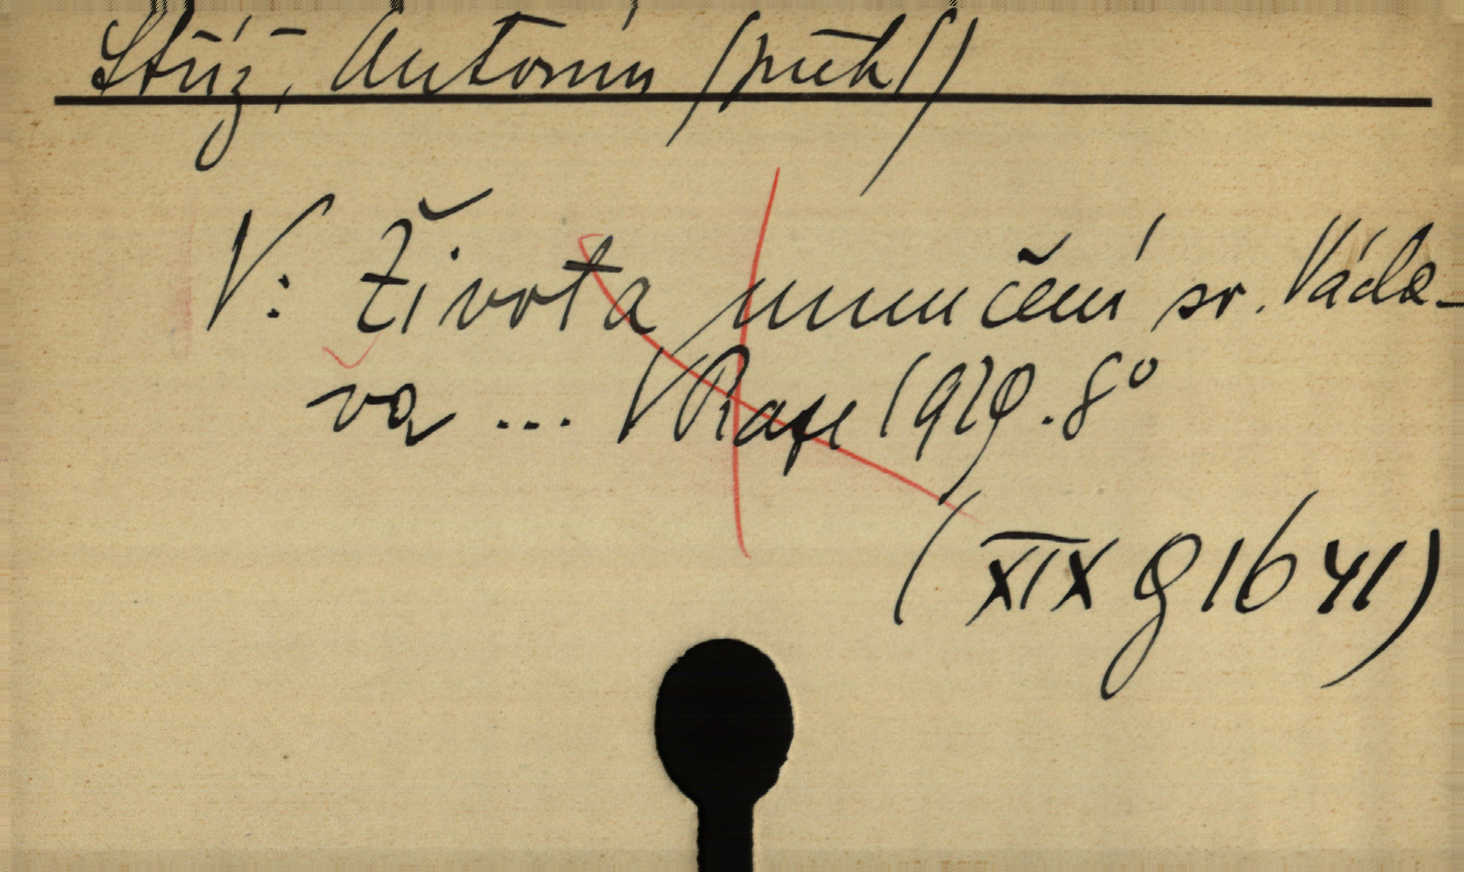 Stříž, Antonín (překl)
V: Život a umučení sv. Václa-
va ... V Praze 1929. 8°
(XIX g 1641)